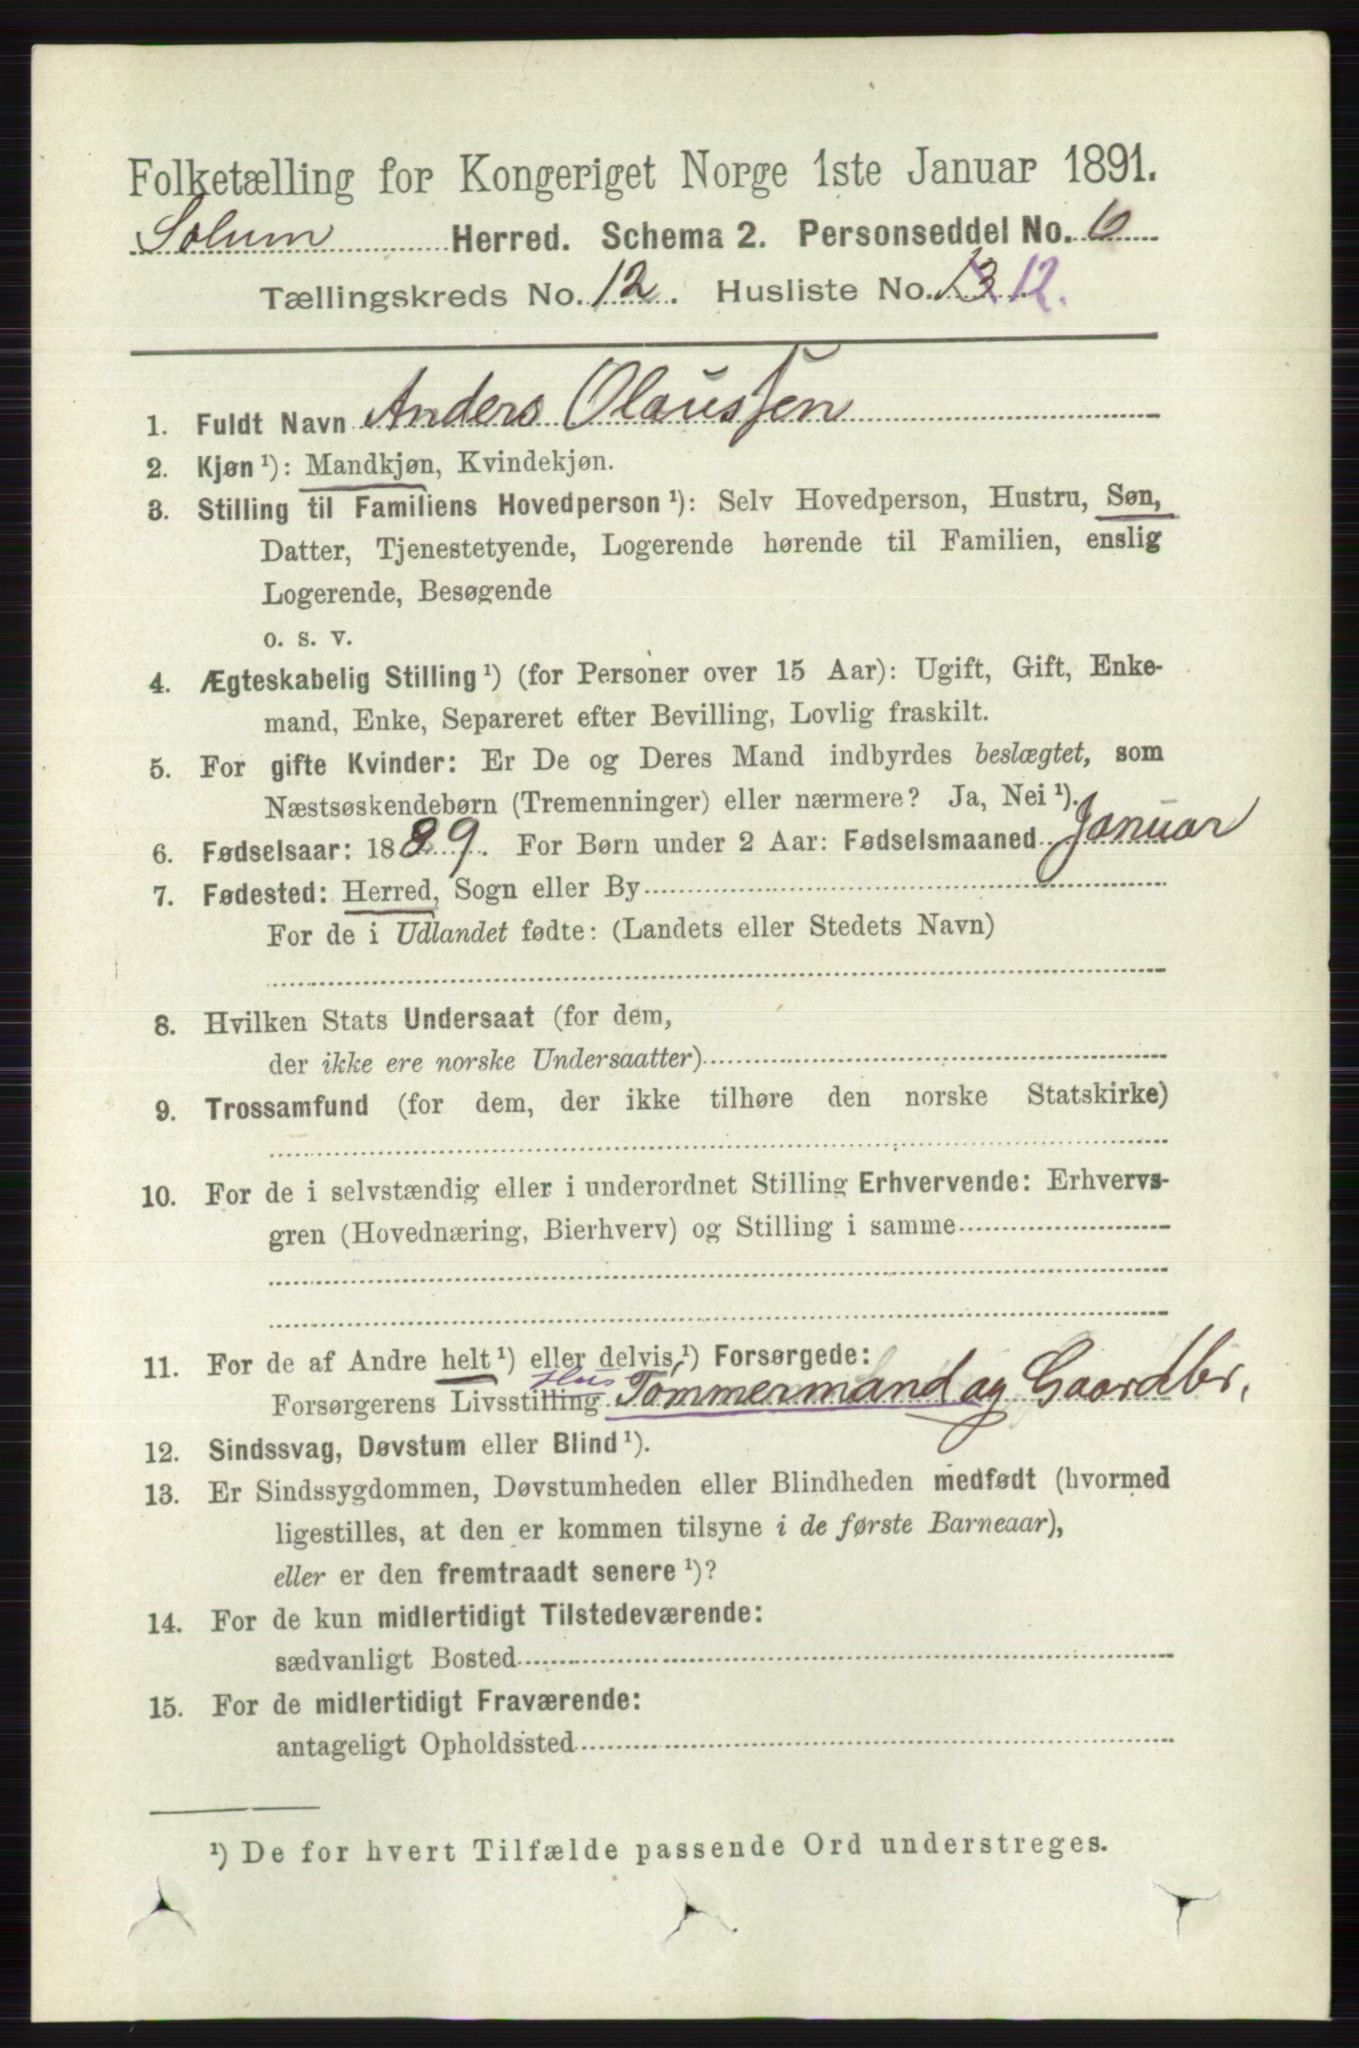 Folketælling for Kongeriget Norge 1ste Januar 1891.
Solum Herred. Schema 2. Personseddel No. 6
Tællingskreds No. 12. Husliste No. 13 12.
1. Fuldt Navn Anders Olaussen
2. Kjøn ¹): Mandkjøn, Kvindekjøn.
3. Stilling til Familiens Hovedperson ¹): Selv Hovedperson, Hustru, Søn,
Datter, Tjenestetyende, Logerende hørende til Familien, enslig
Logerende, Besøgende
o. s. v.
4. Ægteskabelig Stilling ¹) (for Personer over 15 Aar): Ugift, Gift, Enke-
mand, Enke, Separeret efter Bevilling, Lovlig fraskilt.
5. For gifte Kvinder: Er De og Deres Mand indbyrdes beslægtet, som
Næstsøskendebørn (Tremenninger) eller nærmere? Ja, Nei ¹).
6. Fødselsaar: 1889. For Børn under 2 Aar: Fødselsmaaned Januar
7. Fødested: Herred, Sogn eller By
For de i Udlandet fødte: (Landets eller Stedets Navn)
8. Hvilken Stats Undersaat (for dem,
der ikke ere norske Undersaatter)
9. Trossamfund (for dem, der ikke tilhøre den norske Statskirke)
10. For de i selvstændig eller i underordnet Stilling Erhvervende: Erhvervs-
gren (Hovednæring, Bierhverv) og Stilling i samme
11. For de af Andre helt ¹) eller delvis ¹) Forsørgede:
Forsørgerens Livsstilling Hus Tømmermand og Gaardbr.
12. Sindssvag, Døvstum eller Blind ¹).
13. Er Sindssygdommen, Døvstumheden eller Blindheden medfødt (hvormed
ligestilles, at den er kommen tilsyne i de første Barneaar),
eller er den fremtraadt senere ¹)?
14. For de kun midlertidigt Tilstedeværende:
sædvanligt Bosted
15. For de midlertidigt Fraværende:
antageligt Opholdssted
¹) De for hvert Tilfælde passende Ord understreges.